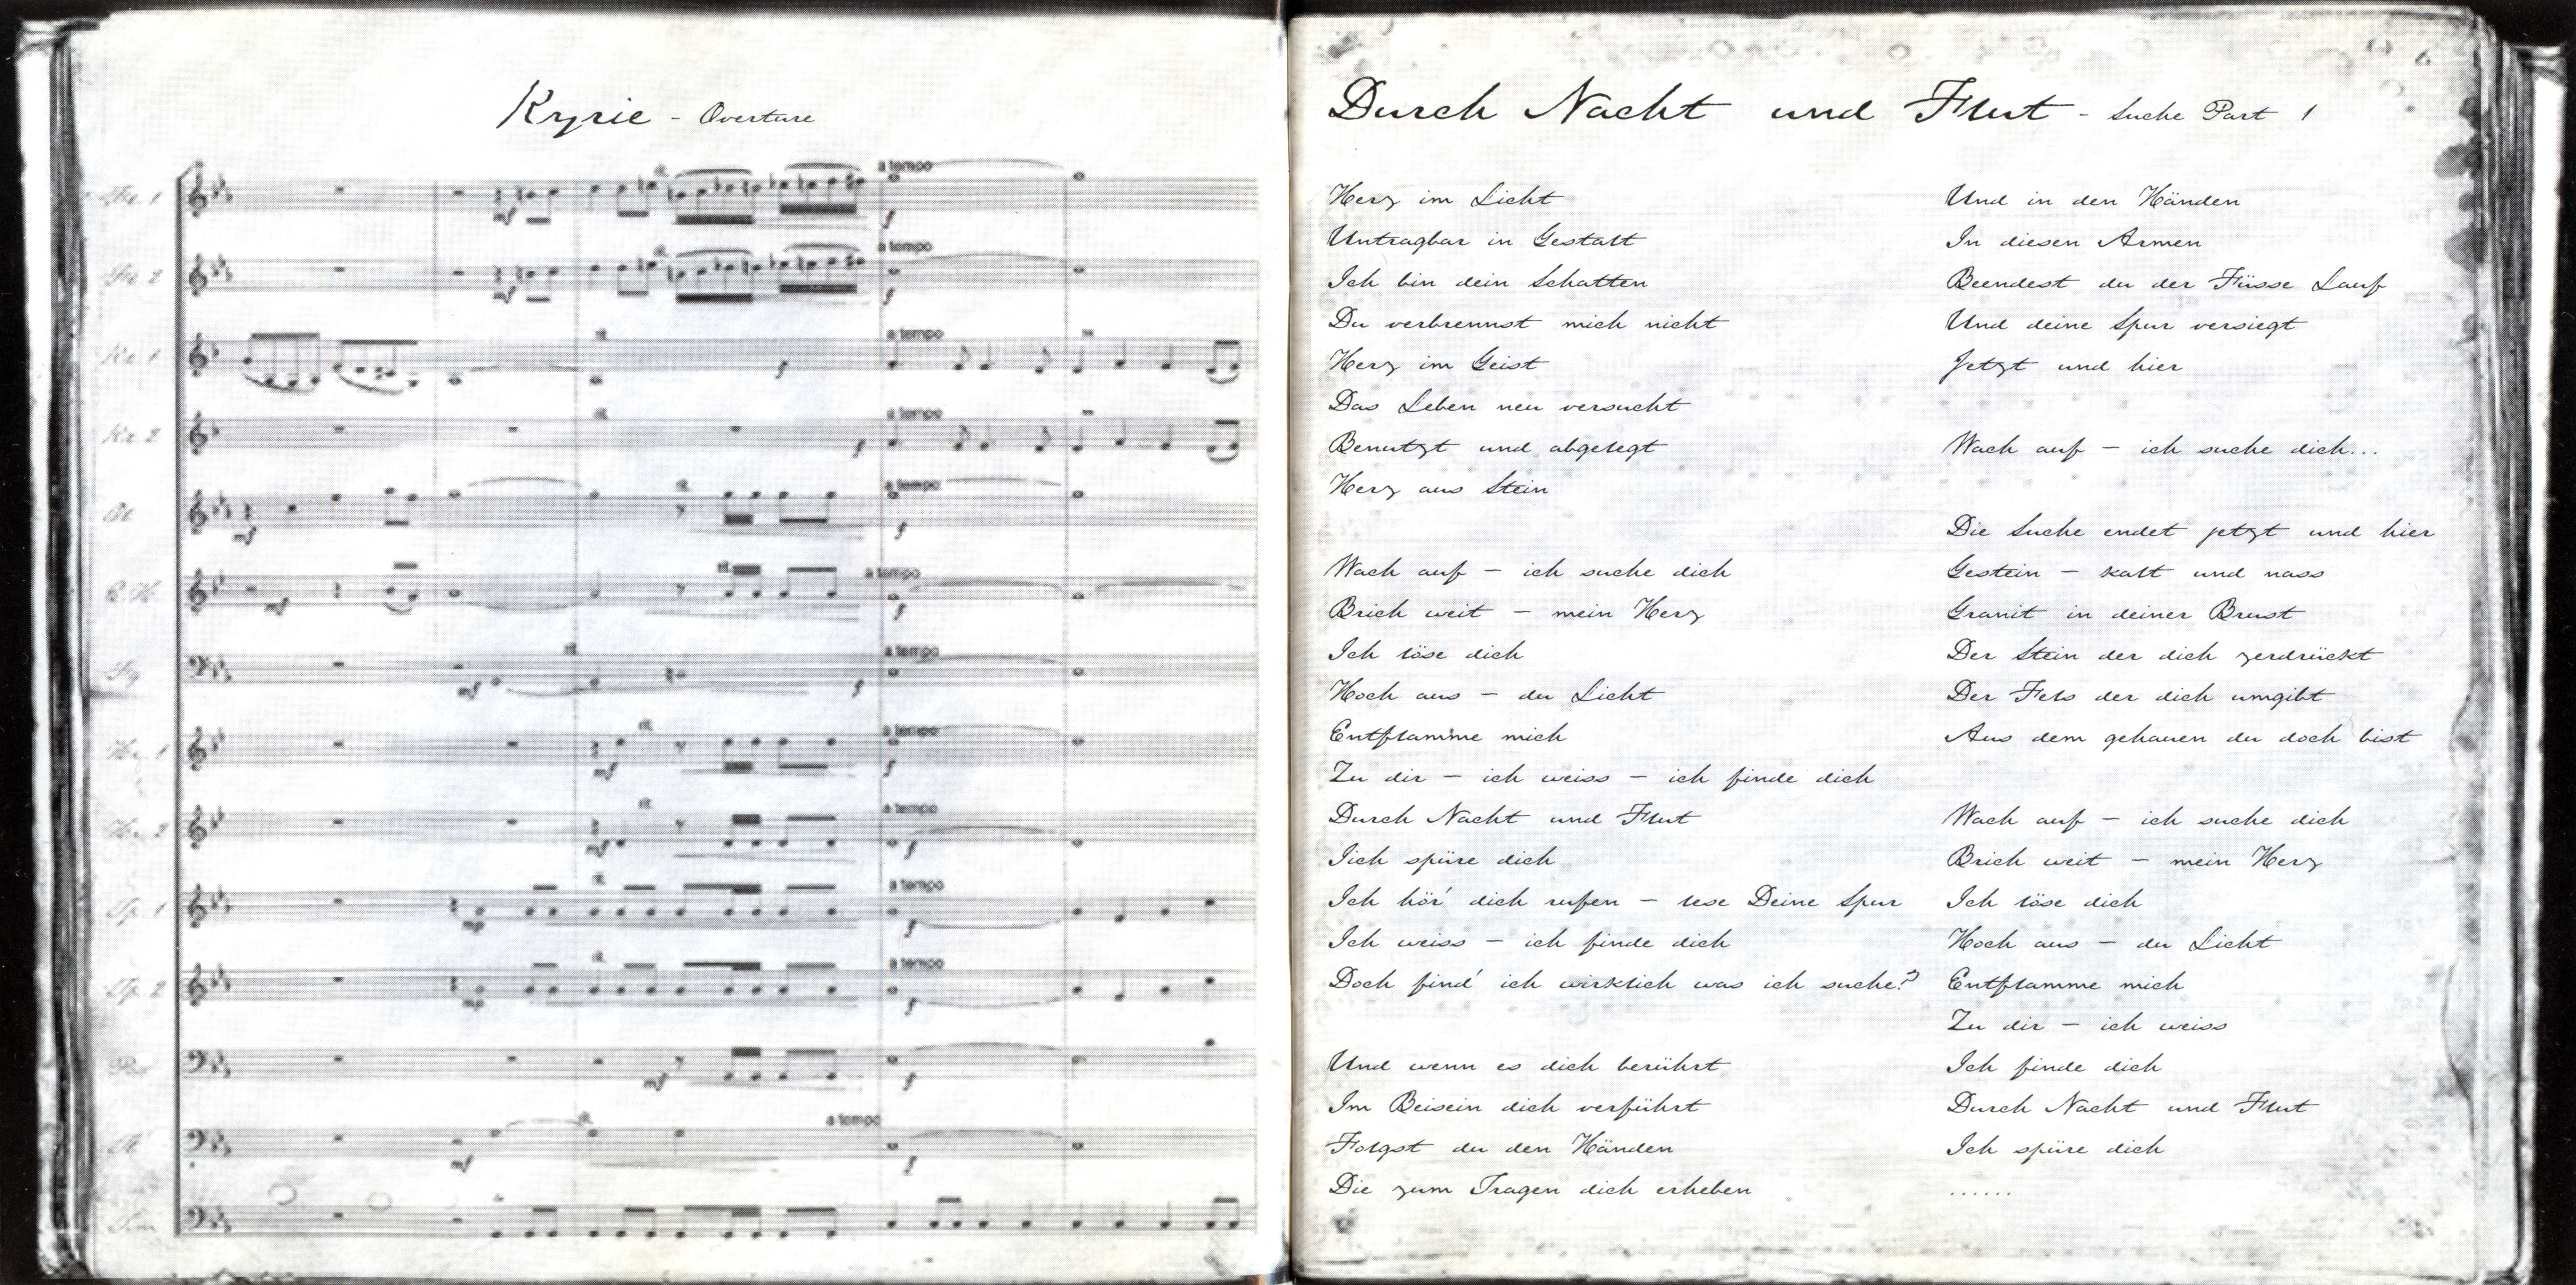 Kyrie - Overture
Fl. 1
a tempo
mf
f
Fl. 2
a tempo
mf
f
Kl. 1
a tempo
f
Kl. 2
a tempo
f
a tempo
mf
f
a tempo
mf
f
Fg
a tempo
mf
f
Hr. 1
a tempo
mf
f
Hr. 2
a tempo
mf
f
Tp. 1
a tempo
mp
f
Tp. 2
a tempo
mp
f
mf
f
a tempo
mf
f
Durch Nacht und Flut - Suche Part 1
Herz im Licht
Untragbar in Gestalt
Ich bin dein Schatten
Du verbrennst mich nicht
Herz im Geist
Das Leben neu versucht
Benutzt und abgelegt
Herz aus Stein
Wach auf - ich suche dich
Brich weit - mein Herz
Ich löse dich
Hoch aus - du Licht
Entflamme mich
Zu dir - ich weiss - ich finde dich
Durch Nacht und Flut
Iich spüre dich
Ich hör' dich rufen - lese Deine Spur
Ich weiss - ich finde dich
Doch find' ich wirklich was ich suche?
Und wenn es dich berührt
Im Beisein dich verführt
Folgst du den Händen
Die zum Tragen dich erheben
Und in den Händen
In diesen Armen
Beendest du der Füsse Lauf
Und deine Spur versiegt
Jetzt und hier
Wach auf - ich suche dich...
Die Suche endet jetzt und hier
Gestein - kalt und nass
Granit in deiner Brust
Der Stein der dich zerdrückt
Der Fels der dich umgibt
Aus dem gehauen du doch bist
Wach auf - ich suche dich
Brich weit - mein Herz
Ich löse dich
Hoch aus - du Licht
Entflamme mich
Zu dir - ich weiss
Ich finde dich
Durch Nacht und Flut
Ich spüre dich
......